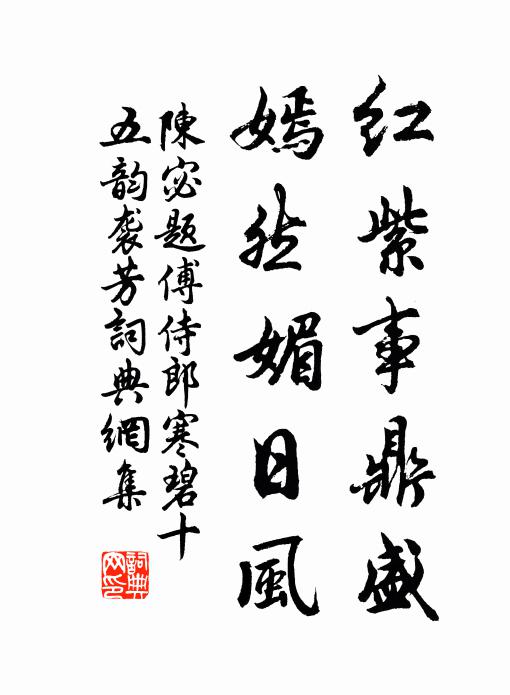 红紫事鼎盛
嫣然媚日風
陳宓題傅侍郎寒碧十
五韵袭芳詞典網集
詞典
网印